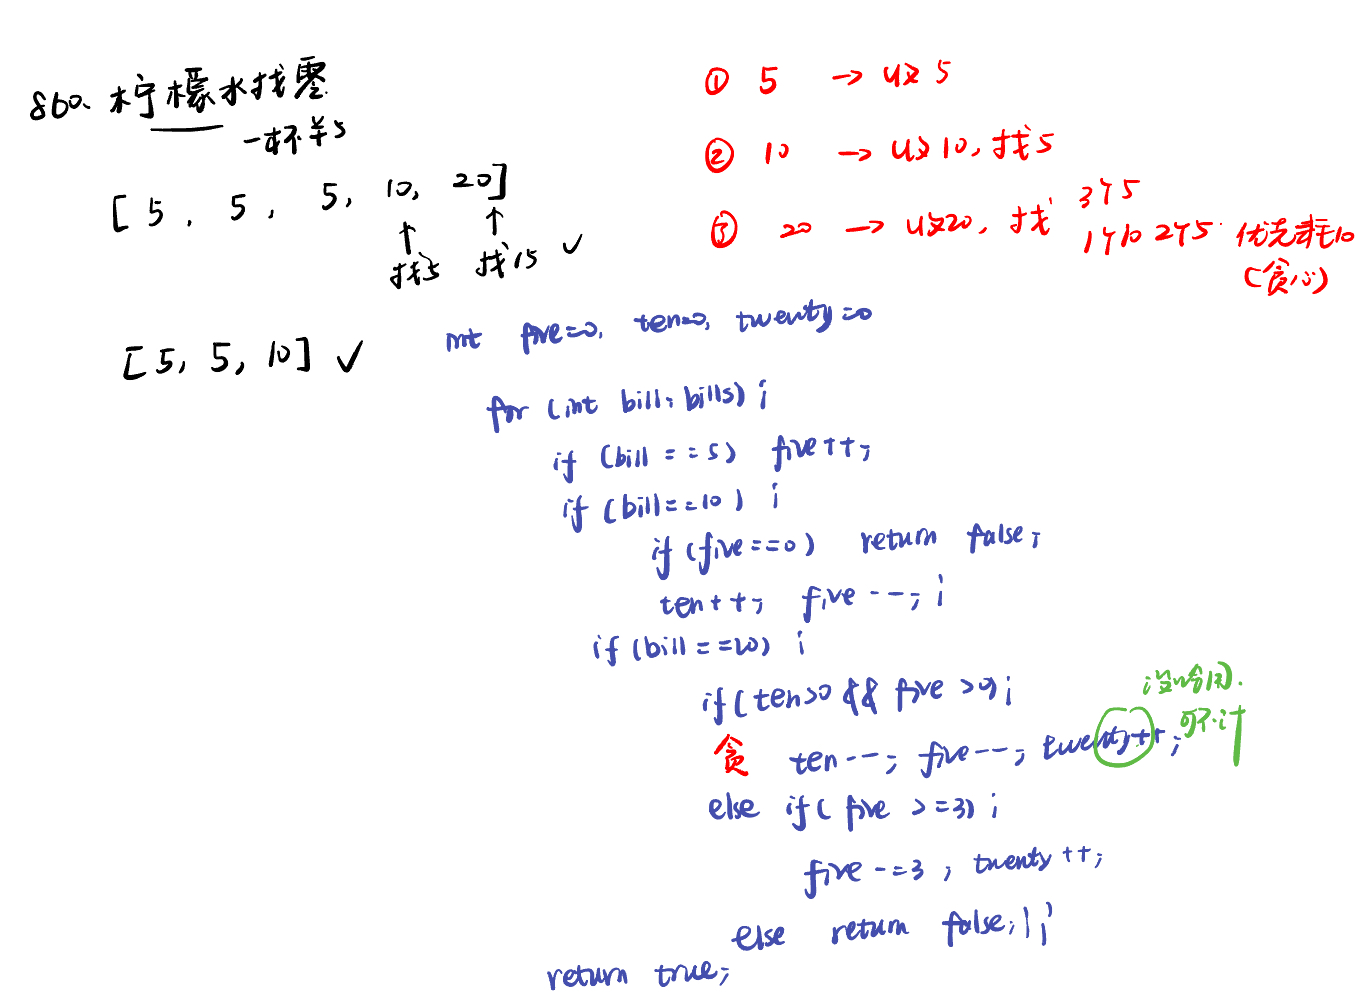 860. 柠檬水找零
一杯￥5
[ 5 , 5 , 5, 10, 20]
找5 找15 ✓
[5, 5, 10] ✓
① 5 → 收 5
② 10 → 收10, 找5
③ 20 → 收20, 找 3个5
1个10 2个5 优先耗10
(贪心)
int five=0, ten=0, twenty=0
for (int bill: bills) {
if (bill ==5) five++;
if (bill==10) {
if (five==0) return false;
ten++; five--; }
if (bill ==20) {
if (ten>0 && five >0) {
贪 ten--; five--; twenty++;
没啥用.
可不计
else if ( five >=3) {
five -=3 ; twenty ++;
else return false; } }
return true;